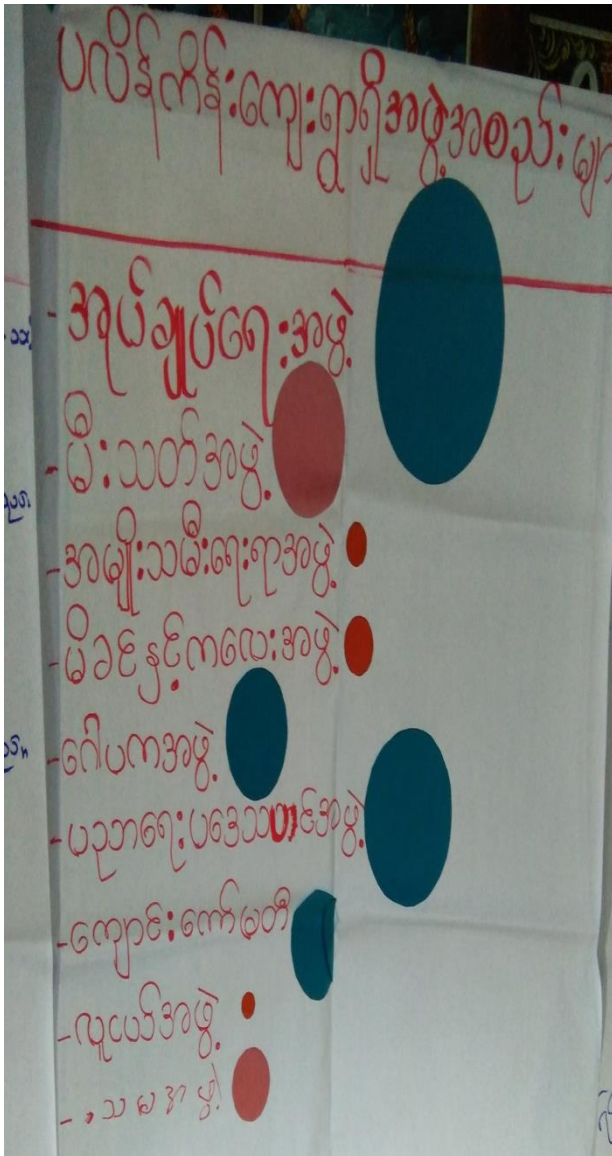 ပလိန်ကိန်းကျေးရွာရှိအဖွဲ့အစည်းများ
- အုပ်ချုပ်ရေးအဖွဲ့
- မီးသတ်အဖွဲ့
- အမျိုးသမီးရေးရာအဖွဲ့
- မိခင်နှင့်ကလေးအဖွဲ့
- ဂေါပကအဖွဲ့
- ပညာရေးပဒေသာပင်အဖွဲ့
- ကျောင်းကော်မတီ
- လူငယ်အဖွဲ့